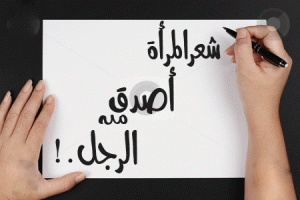 شعر المرأة
أصدق
منه
الرجل..!